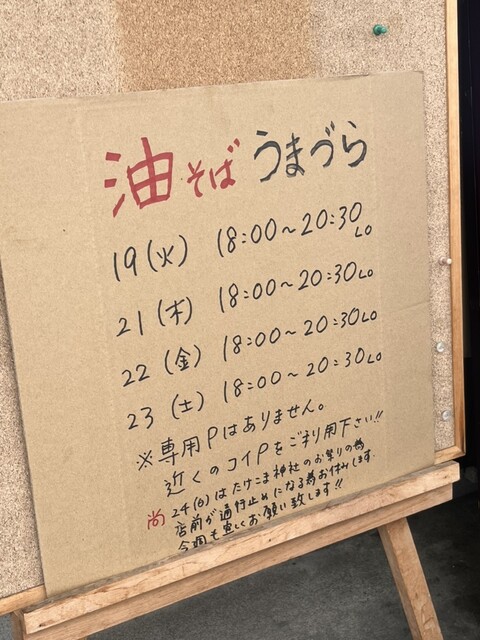 油そば うまづら
19(火) 18:00〜20:30LO
21(木) 18:00〜20:30LO
22(金) 18:00〜20:30LO
23(土) 18:00〜20:30LO
※専用Pはありません。
近くのコイPをご利用下さい!!
尚 24(日)はたけこま神社のお祭りの為
店前が通行止めになる為お休みします。
今週も宜しくお願い致します!!